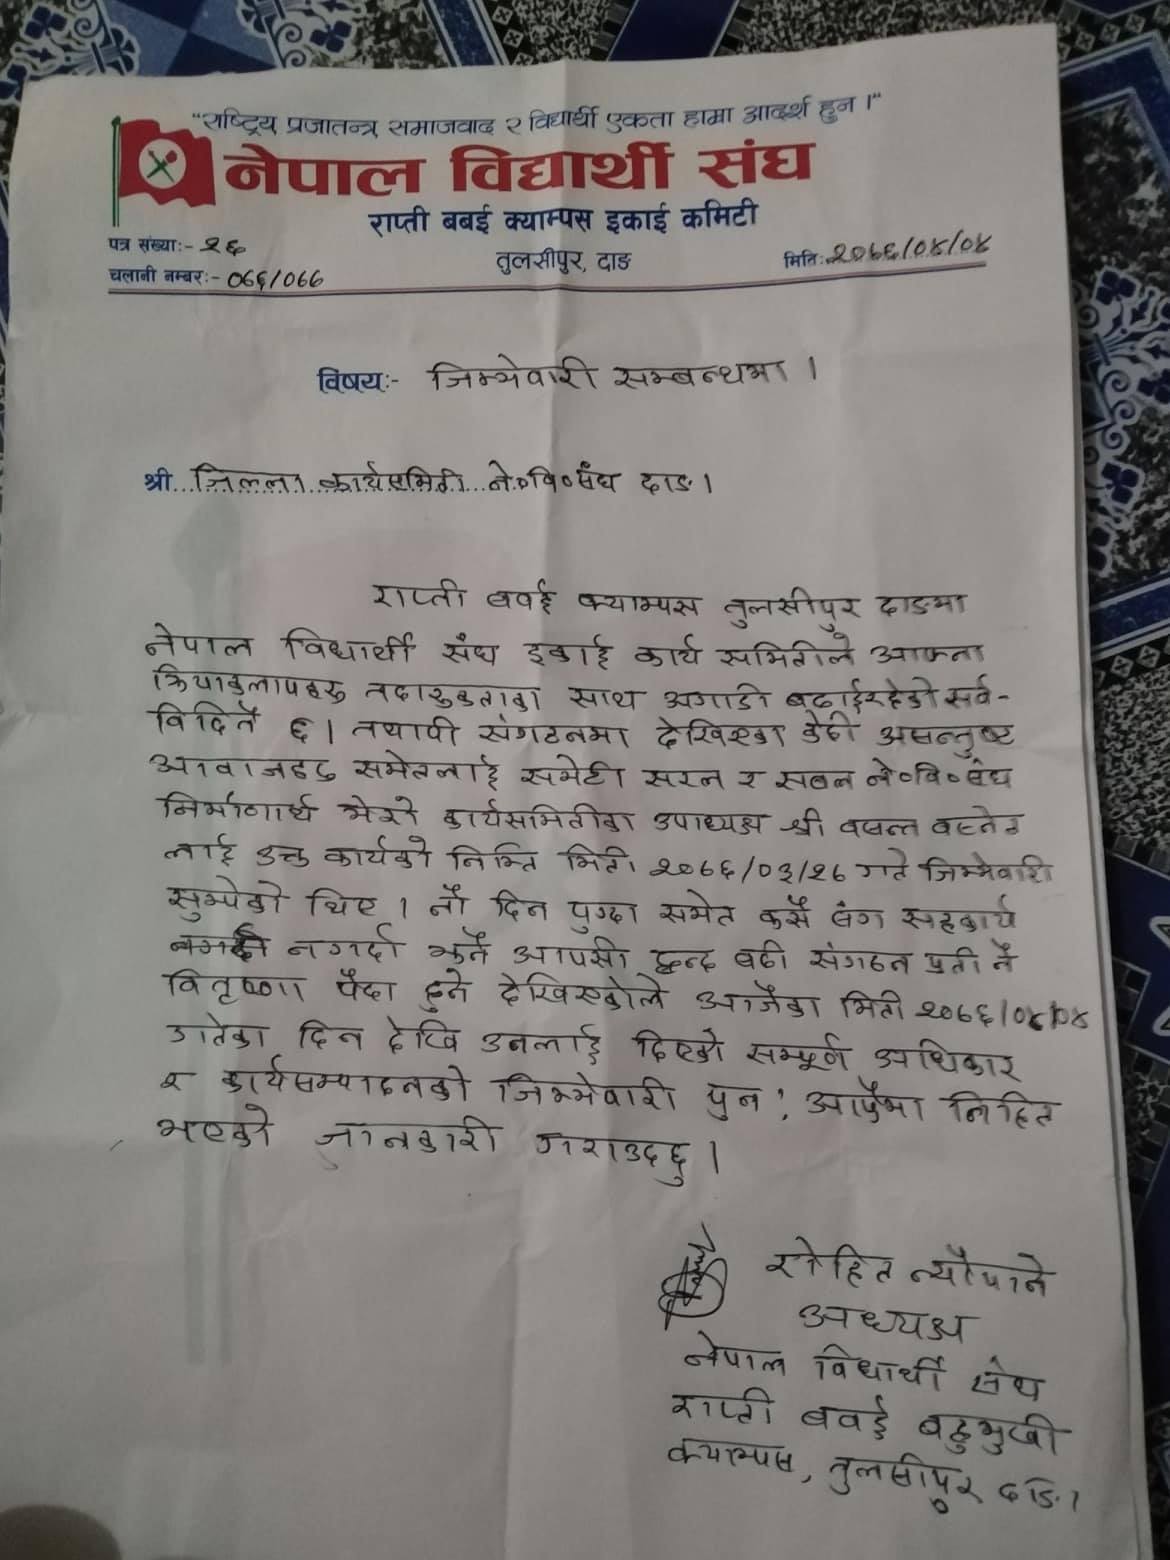 "राष्ट्रिय प्रजातन्त्र समाजवाद र विद्यार्थी एकता हाम्रा आदर्श हुन ।"
नेपाल विद्यार्थी संघ
राप्ती बबई क्याम्पस इकाई कमिटी
पत्र संख्या:- २६
तुलसीपुर, दाङ
मिति: २०६६/०४/०४
चलानी नम्बर:- ०६६/०६६
विषय:- जिम्मेवारी सम्बन्धमा ।
श्री जिल्ला कार्यसमिती ने०वि०संघ दाङ ।
राप्ती बवई क्याम्पस तुलसीपुर दाङमा
नेपाल विधार्थी संघ इकाई कार्य समितीले आफ्ना
क्रियाकलापहरु तदारुकताका साथ अगाडी बढाईरहेको सर्व-
विदितै छ । तथापी संगठनमा देखिएका केही असन्तुष्ट
आवाजहरु समेतलाई समेटी सरल र सवल ने०वि०संघ
निर्माणार्थ मेरो कार्यसमितीका उपाध्यक्ष श्री वसन्त वस्नेत
लाई उक्त कार्यको निम्ति मिती २०६६/०३/२६ गते जिम्मेवारी
सुम्पेको थिए । नौ दिन पुग्दा समेत कसै संग सहकार्य
नगर्दा झनै आपसी द्वन्द बढी संगठन प्रती नै
वितृष्णा पैदा हुने देखिएकोले आजैका मिती २०६६/०४/०४
गतेका दिन देखि उनलाई दिएको सम्पूर्ण अधिकार
र कार्यसम्पादनको जिम्मेवारी पुन: आफैमा निहित
भएको जानकारी गराउदछु ।
रोहित न्यौपाने
अध्यक्ष
नेपाल विधार्थी संघ
राप्ती बवई बहुमुखी
क्याम्पस, तुलसीपुर दाङ ।